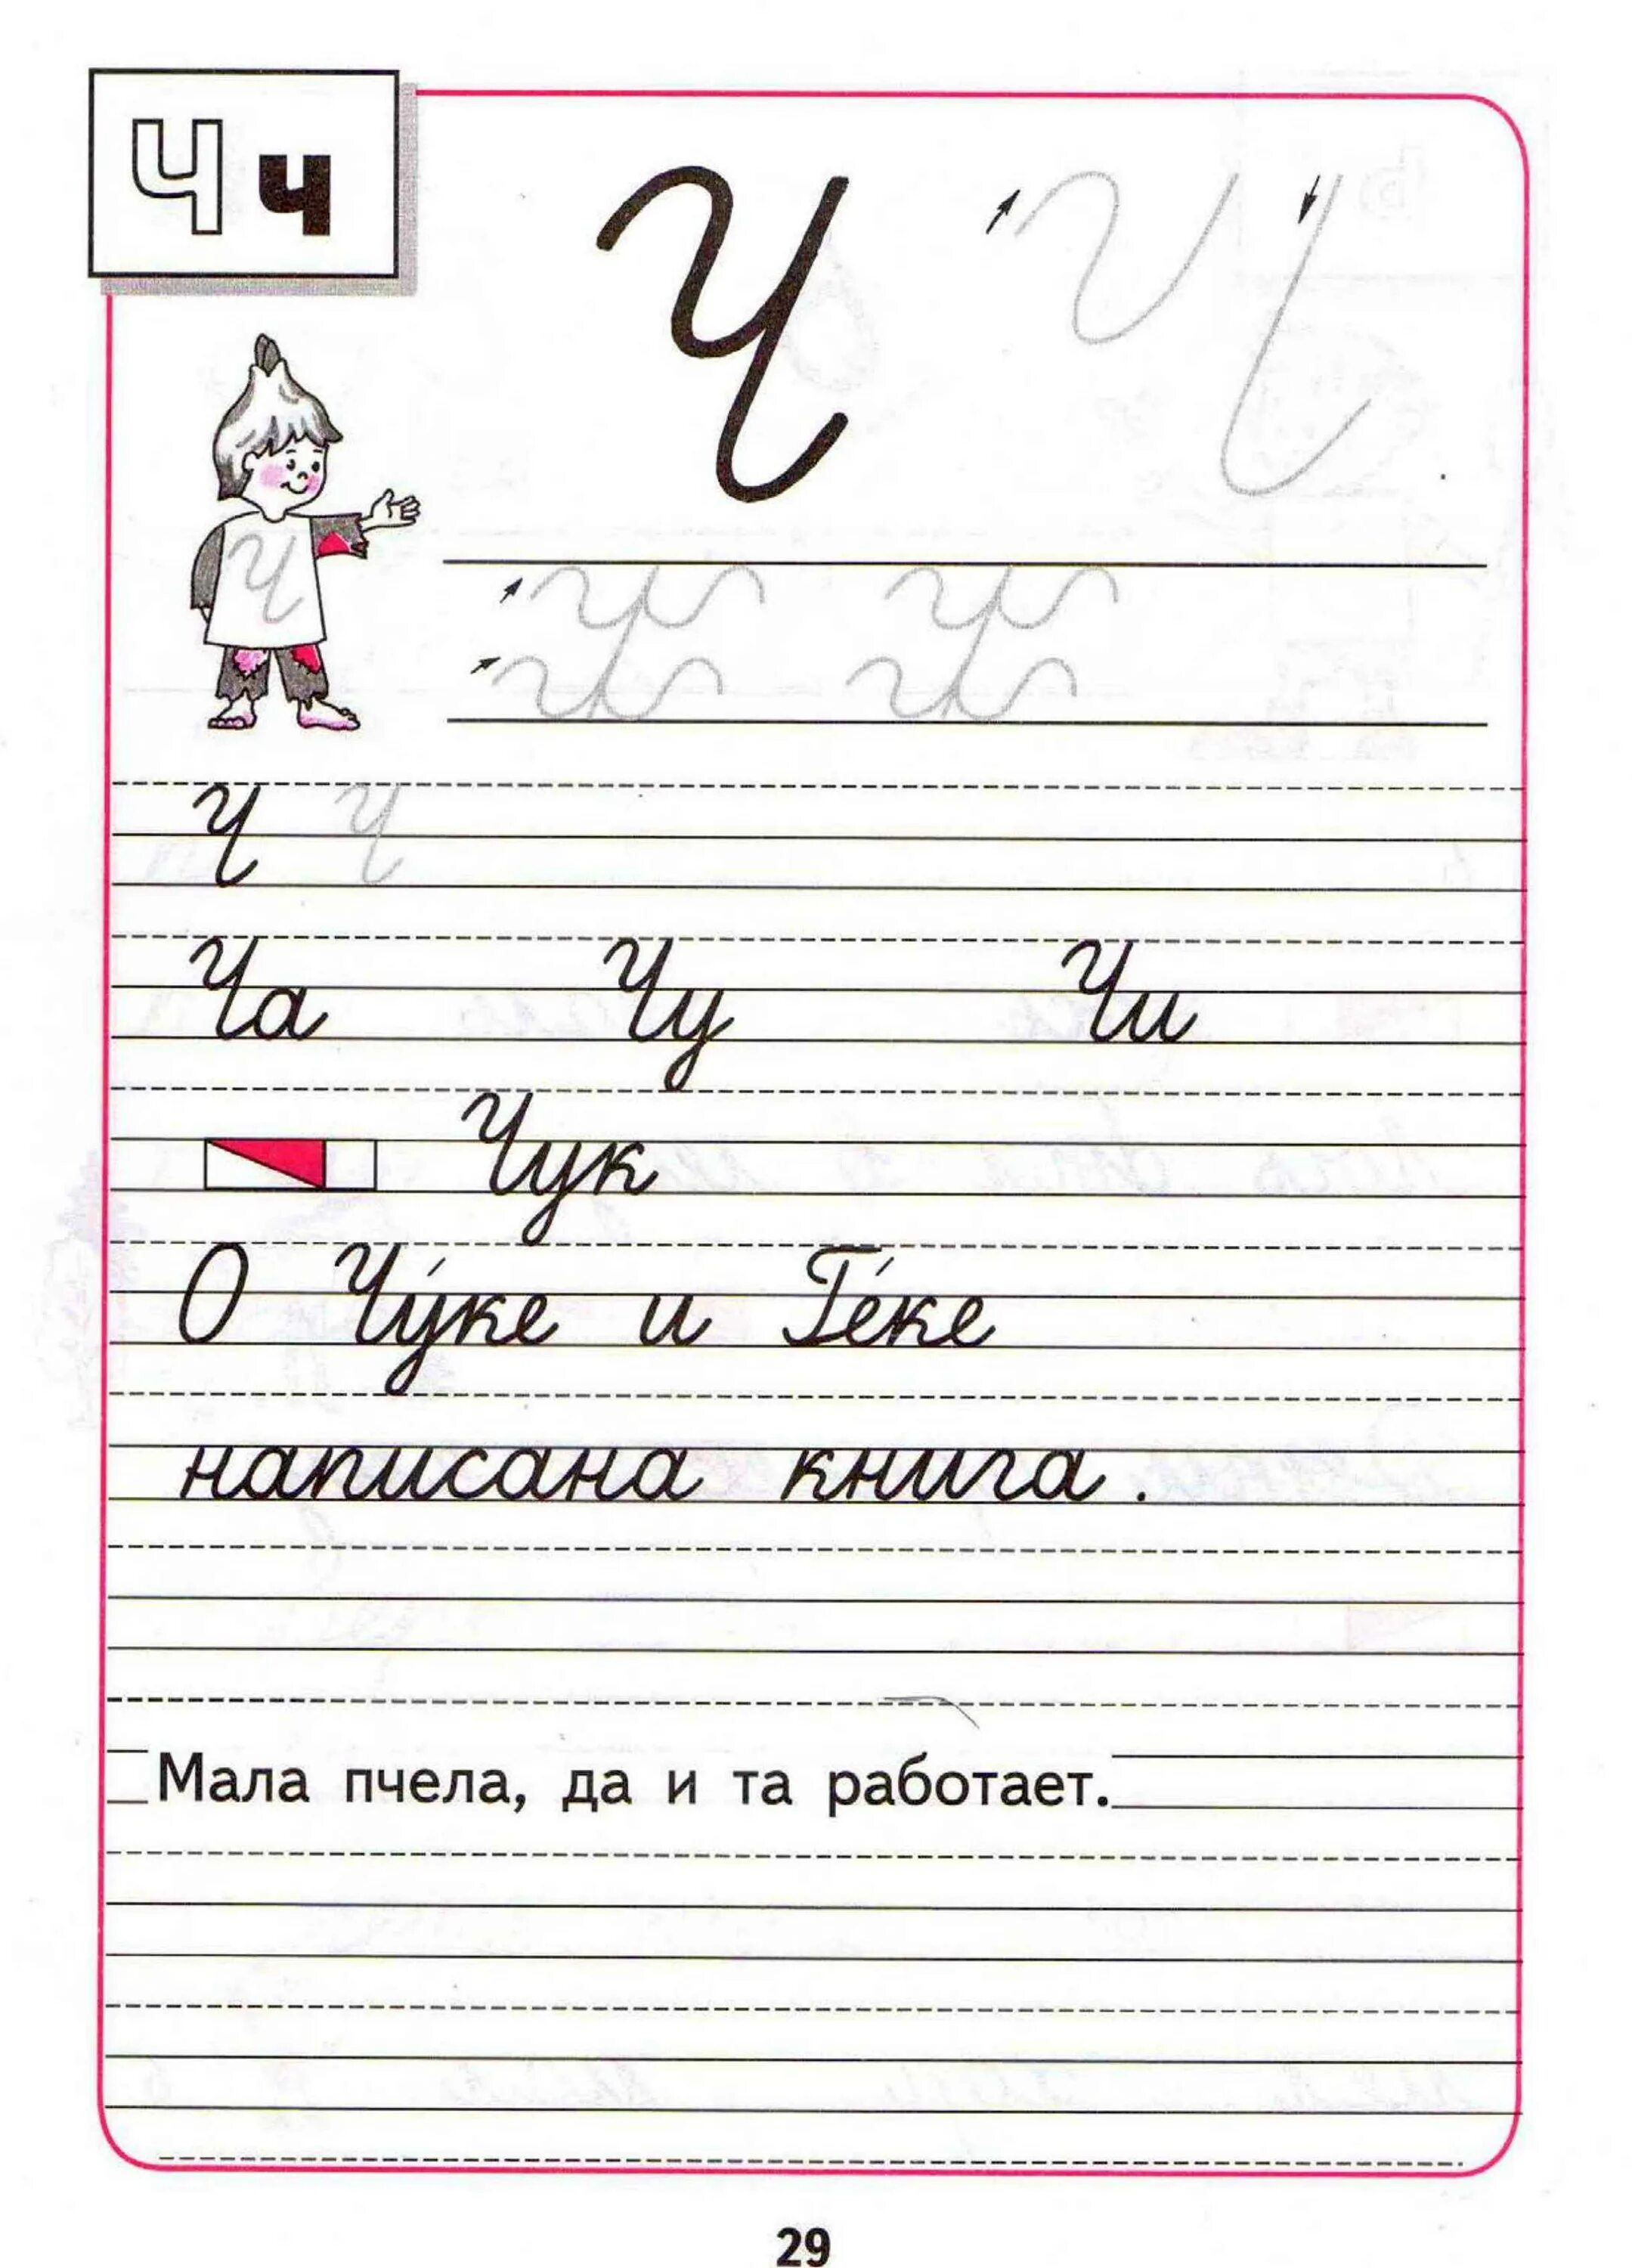 Ч ч
Ч
Ч
Ч Ч
Ча Чу Чи
Чук
О Чу́ке и Ге́ке
написана книга.
Мала пчела, да и та работает.
29